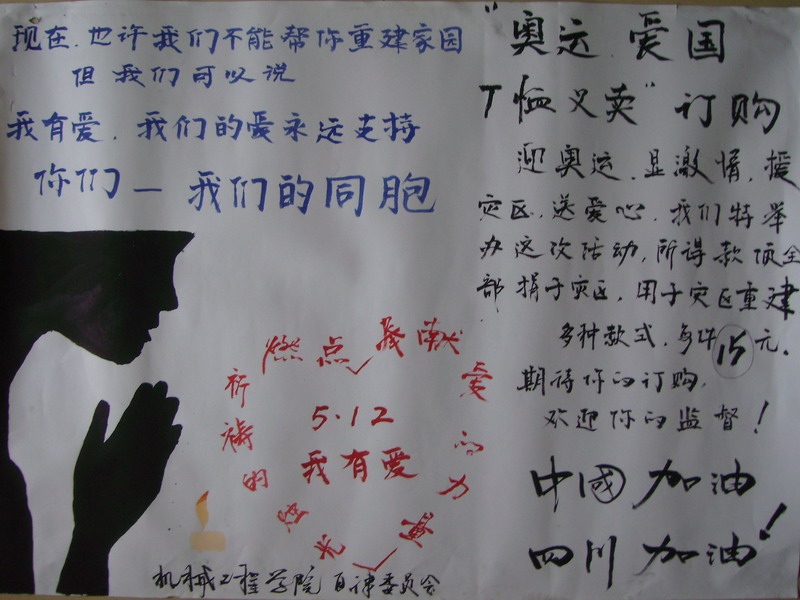 现在.也许我们不能帮你重建家园
但我们可以说
我有爱.我们的爱永远支持
你们—我们的同胞
"奥运.爱国
T恤义卖"订购
迎奥运.显激情.援
灾区.送爱心.我们特举
办这次活动,所得款项全
部捐于灾区,用于灾区重建
多种款式,每件15元.
期待你的订购.
欢迎你的监督!
中國加油
四川加油!
燃点
祈祷的
光
献爱的力量
5·12
我有爱
机械工程学院自律委员会